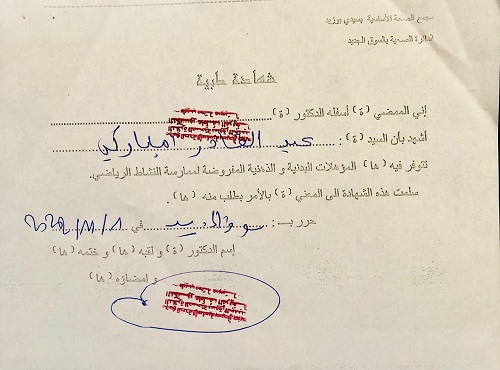 مجمع الصحة الأساسية بسيدي بوزيد
الدائرة الصحية بالسوق الجديد
شهادة طبية
إني الممضي (ة) أسفله الدكتور (ة)
أشهد بأن السيد (ة) : عبد القادر امباركي
تتوفر فيه (ها) المؤهلات البدنية و الذهنية المفروضة لممارسة النشاط الرياضي.
سلمت هذه الشهادة الى المعني (ة) بالأمر بطلب منه (ها).
حرر بـ : في
إسم الدكتور (ة) و لقبه (ها) و ختمه (ها)
و امضاؤه (ها)